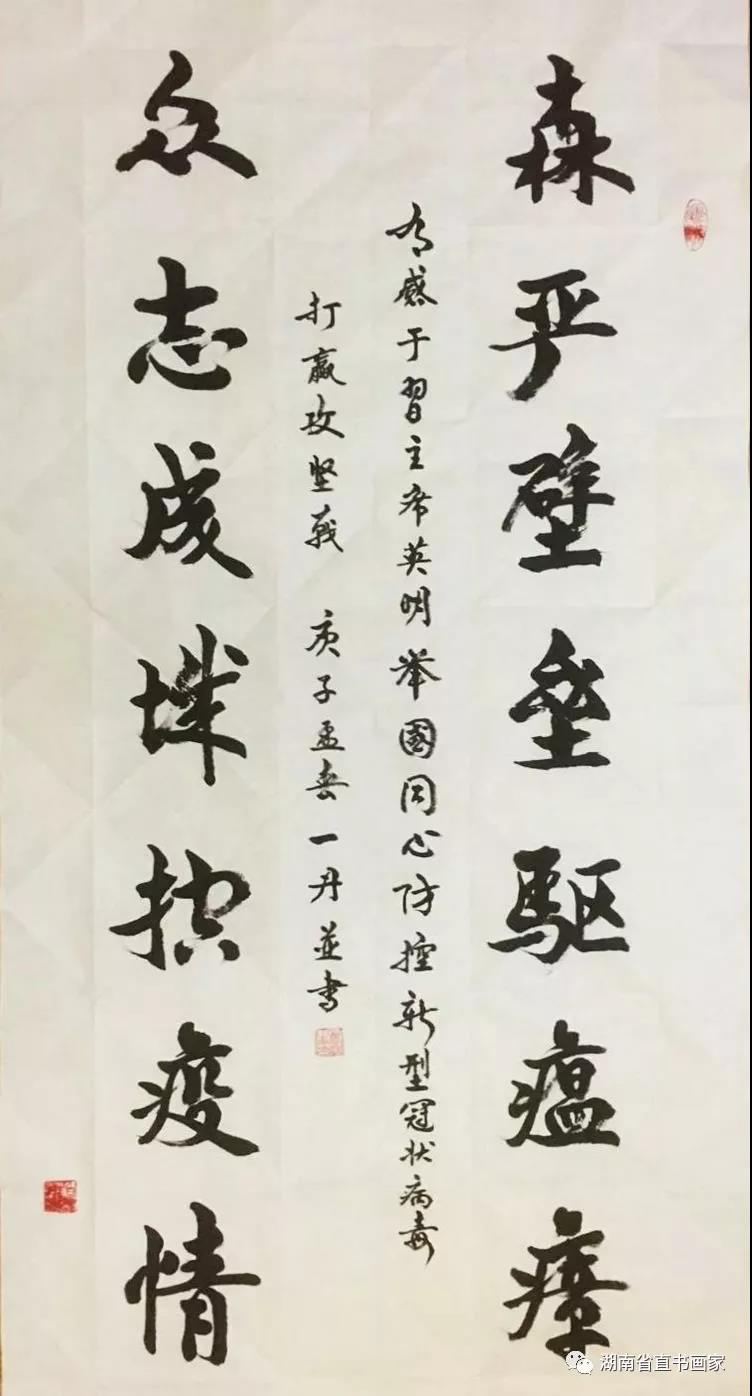 森严壁垒驱瘟瘴
有感于習主席英明举國同心防控新型冠状病毒
打赢攻坚戦 庚子孟春一丹並书
众志成城控疫情
湖南省直书画家